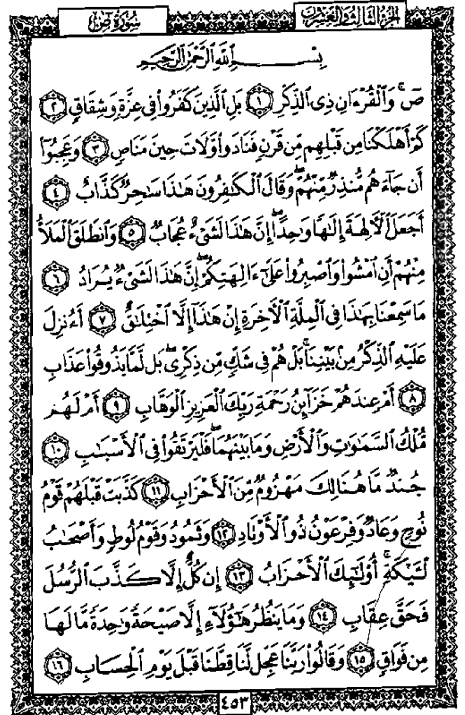 الجزء الثالث والعشرون
سورة ص
بسم الله الرحمن الرحيم
صٓ ۚ وَالْقُرْءَانِ ذِى الذِّكْرِ ١ بَلِ الَّذِينَ كَفَرُوا فِى عِزَّةٍ وَشِقَاقٍ ٢
كَمْ أَهْلَكْنَا مِن قَبْلِهِم مِّن قَرْنٍ فَنَادَوا وَّلَاتَ حِينَ مَنَاصٍ ٣ وَعَجِبُوٓا
أَن جَآءَهُم مُّنذِرٌ مِّنْهُمْ ۖ وَقَالَ الْكَٰفِرُونَ هَٰذَا سَٰحِرٌ كَذَّابٌ ٤
أَجَعَلَ الْءَالِهَةَ إِلَٰهًا وَٰحِدًا ۖ إِنَّ هَٰذَا لَشَىْءٌ عُجَابٌ ٥ وَانطَلَقَ الْمَلَأُ
مِنْهُمْ أَنِ امْشُوا وَاصْبِرُوا عَلَىٰٓ ءَالِهَتِكُمْ ۖ إِنَّ هَٰذَا لَشَىْءٌ يُرَادُ ٦
مَا سَمِعْنَا بِهَٰذَا فِى الْمِلَّةِ الْءَاخِرَةِ إِنْ هَٰذَآ إِلَّا اخْتِلَٰقٌ ٧ أَءُنزِلَ
عَلَيْهِ الذِّكْرُ مِنۢ بَيْنِنَا ۚ بَلْ هُمْ فِى شَكٍّ مِّن ذِكْرِى ۖ بَل لَّمَّا يَذُوقُوا عَذَابِ
٨ أَمْ عِندَهُمْ خَزَآئِنُ رَحْمَةِ رَبِّكَ الْعَزِيزِ الْوَهَّابِ ٩ أَمْ لَهُم
مُّلْكُ السَّمَٰوَٰتِ وَالْأَرْضِ وَمَا بَيْنَهُمَا ۖ فَلْيَرْتَقُوا فِى الْأَسْبَٰبِ ١٠
جُندٌ مَّا هُنَالِكَ مَهْزُومٌ مِّنَ الْأَحْزَابِ ١١ كَذَّبَتْ قَبْلَهُمْ قَوْمُ
نُوحٍ وَعَادٌ وَفِرْعَوْنُ ذُو الْأَوْتَادِ ١٢ وَثَمُودُ وَقَوْمُ لُوطٍ وَأَصْحَٰبُ
لْـَٔيْكَةِ ۚ أُولَٰٓئِكَ الْأَحْزَابُ ١٣ إِن كُلٌّ إِلَّا كَذَّبَ الرُّسُلَ
فَحَقَّ عِقَابِ ١٤ وَمَا يَنظُرُ هَٰٓؤُلَآءِ إِلَّا صَيْحَةً وَٰحِدَةً مَّا لَهَا
مِن فَوَاقٍ ١٥ وَقَالُوا رَبَّنَا عَجِّل لَّنَا قِطَّنَا قَبْلَ يَوْمِ الْحِسَابِ ١٦
٤٥٣